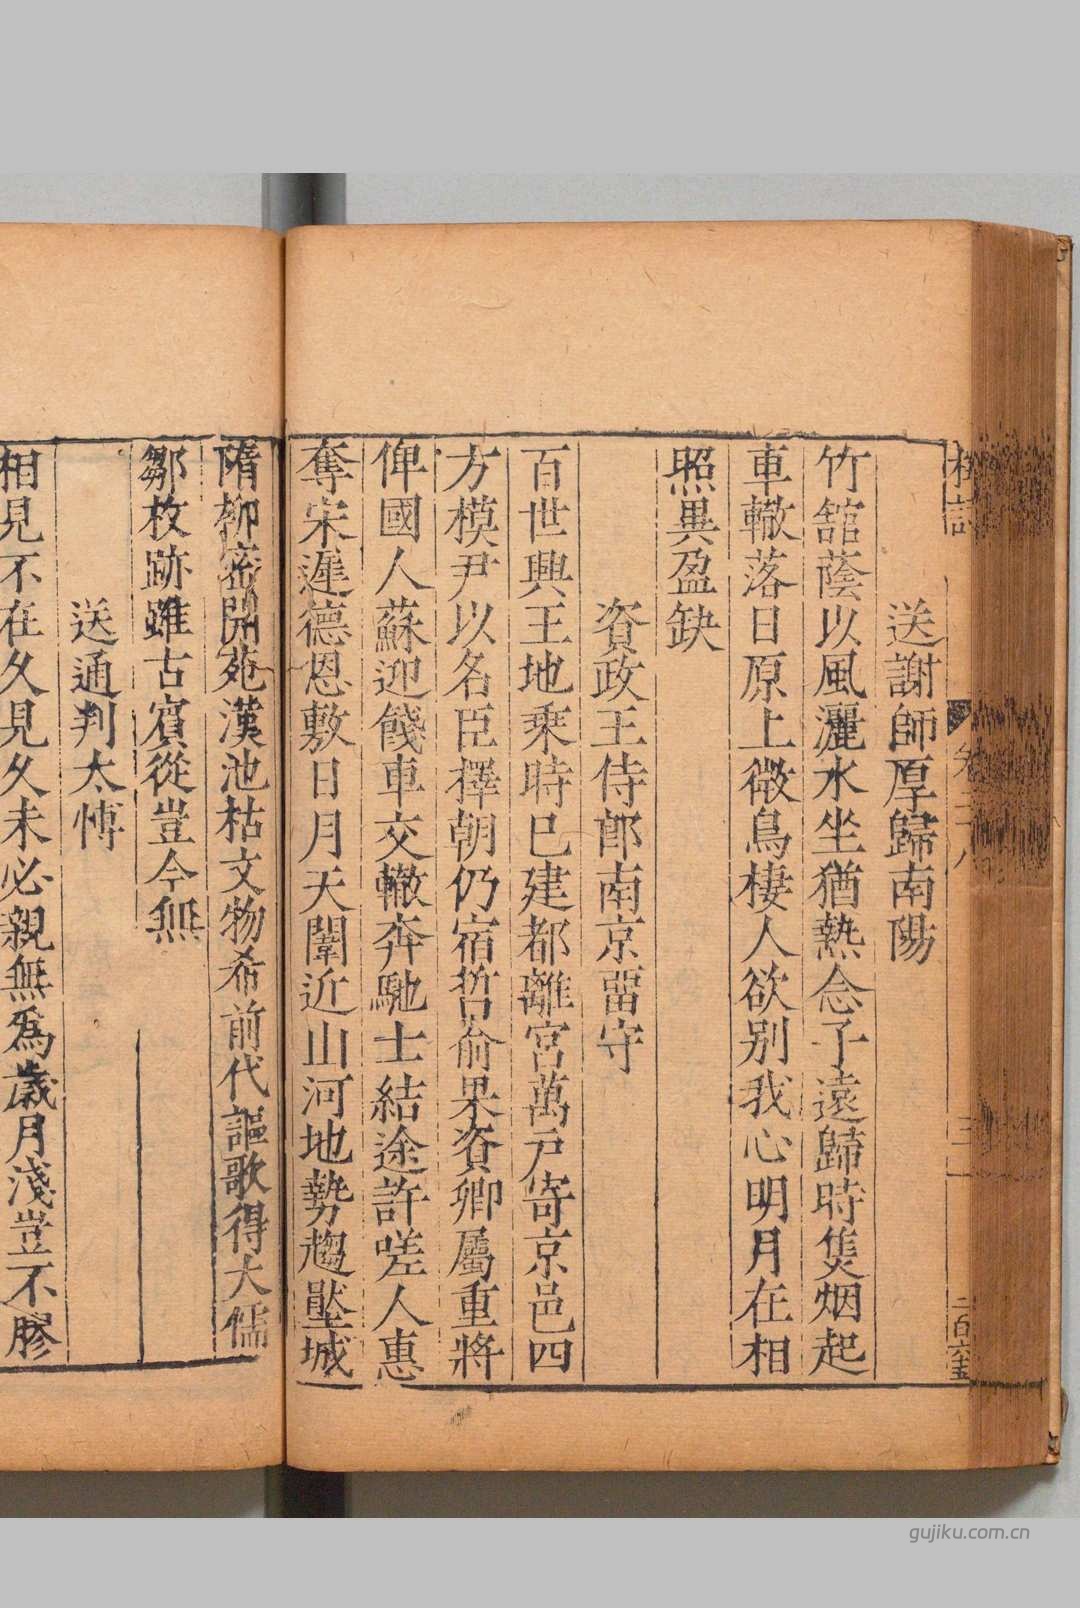 送謝師厚歸南陽
竹舘蔭以風灑水坐猶熱念子遠歸時隻烟起
車轍落日原上微鳥棲人欲别我心明月在相
照異盈缺
資政王侍郎南京畱守
百世興王地乘時已建都離宮萬戸寄京邑四
方模尹以名臣擇朝仍宿哲俞果資卿屬重將
俾國人蘇迎餞車交轍奔馳士結途許嗟人惠
奪宋遲德恩敷日月天闈近山河地勢趨壓城
隋柳密開苑漢池枯文物希前代謳歌得大儒
鄒枚跡雖古賓從豈今無
送通判太愽
相見不在久見久未必親無爲歲月淺豈不膠
二百六五
gujiku.com.cn